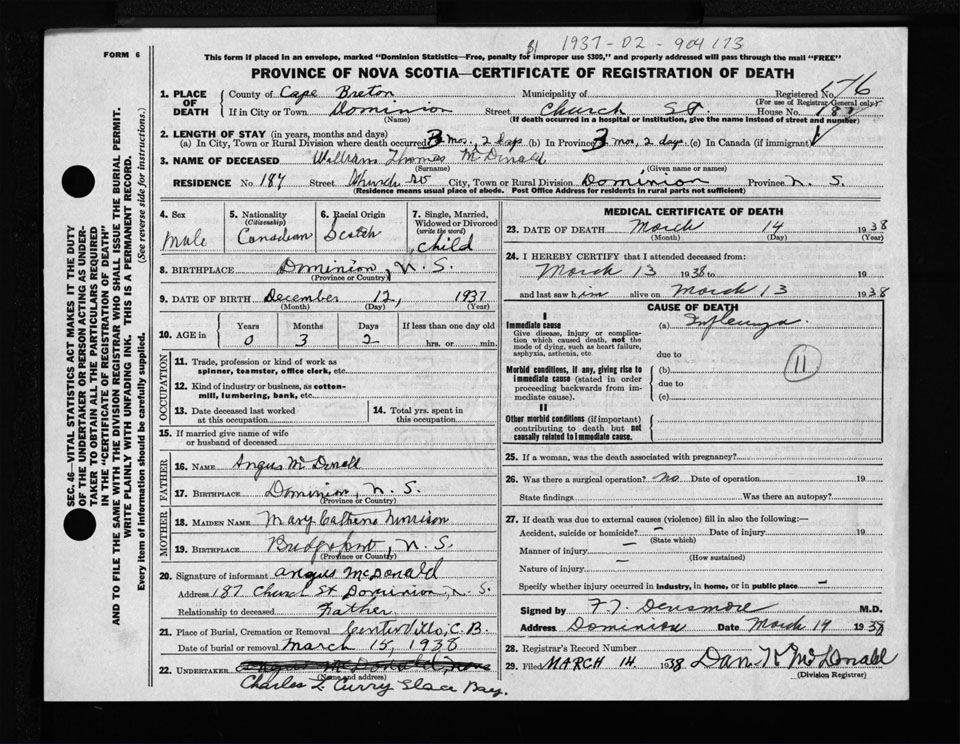 1937-02-904173
FORM 6
This form if placed in an envelope, marked "Dominion Statistics—Free, penalty for improper use $300," and properly addressed will pass through the mail "FREE"
PROVINCE OF NOVA SCOTIA—CERTIFICATE OF REGISTRATION OF DEATH
SEC. 46—VITAL STATISTICS ACT MAKES IT THE DUTY
OF THE UNDERTAKER OR PERSON ACTING AS UNDER-
TAKER TO OBTAIN ALL THE PARTICULARS REQUIRED
IN THE "CERTIFICATE OF REGISTRATION OF DEATH"
AND TO FILE THE SAME WITH THE DIVISION REGISTRAR WHO SHALL ISSUE THE BURIAL PERMIT.
WRITE PLAINLY WITH UNFADING INK. THIS IS A PERMANENT RECORD.
Every item of information should be carefully supplied. (See reverse side for instructions.)
1. PLACE OF DEATH
County of Cape Breton Municipality of Registered No. 176
(For use of Registrar-General only)
If in City or Town Dominion Street Church St. House No. 187
(Name) (If death occurred in a hospital or institution, give the name instead of street and number)
2. LENGTH OF STAY (in years, months and days)
(a) In City, Town or Rural Division where death occurred 3 mos., 2 days (b) In Province 3 mos, 2 days (c) In Canada (if immigrant)
3. NAME OF DECEASED William Thomas McDonald
(Surname) (Given name or names)
RESIDENCE No. 187 Street Church St City, Town or Rural Division Dominion Province N. S.
(Residence means usual place of abode. Post Office Address for residents in rural parts not sufficient)
4. Sex
Male
5. Nationality
(Citizenship)
Canadian
6. Racial Origin
Scotch
7. Single, Married,
Widowed or Divorced
(write the word)
child
8. BIRTHPLACE Dominion, N. S.
(Province or Country)
9. DATE OF BIRTH December 12, 1937
(Month) (Day) (Year)
10. AGE in Years Months Days If less than one day old
0 3 2 hrs. or min.
OCCUPATION
11. Trade, profession or kind of work as
spinner, teamster, office clerk, etc.
12. Kind of industry or business, as cotton-
mill, lumbering, bank, etc.
13. Date deceased last worked
at this occupation
14. Total yrs. spent in
this occupation
15. If married give name of wife
or husband of deceased
FATHER
16. NAME Angus McDonald
17. BIRTHPLACE Dominion, N. S.
(Province or Country)
MOTHER
18. MAIDEN NAME Mary Cathrine Morrison
19. BIRTHPLACE Bridgeport, N. S.
(Province or Country)
20. Signature of informant Angus McDonald
Address 187 Church St. Dominion, N. S.
Relationship to deceased Father
21. Place of Burial, Cremation or Removal CenterVille, C. B.
Date of burial or removal March 15, 1938
22. UNDERTAKER Angus McDonald,
(Name and address)
Charles L Curry Glace Bay.
MEDICAL CERTIFICATE OF DEATH
23. DATE OF DEATH March 14 1938
(Month) (Day) (Year)
24. I HEREBY CERTIFY that I attended deceased from:
March 13 1938 to 19
and last saw him alive on March 13 1938
CAUSE OF DEATH
I
Immediate cause (a) Influenza
Give disease, injury or complica-
tion which caused death, not the
mode of dying, such as heart failure,
asphyxia, asthenia, etc
due to
11
Morbid conditions, if any, giving rise to
immediate cause (stated in order
proceeding backwards from im-
mediate cause).
(b)
due to
(c)
II
Other morbid conditions (if important)
contributing to death but not
causally related to immediate cause.
25. If a woman, was the death associated with pregnancy?
26. Was there a surgical operation? No Date of operation 19
State findings Was there an autopsy?
27. If death was due to external causes (violence) fill in also the following:—
Accident, suicide or homicide? – Date of injury 19
(State which)
Manner of injury –
(How sustained)
Nature of injury –
Specify whether injury occurred in industry, in home, or in public place –
Signed by F. T. Densmore M.D.
Address Dominion Date March 14 1938
28. Registrar's Record Number
29. Filed MARCH 14 1938 Dan K McDonald
(Division Registrar)